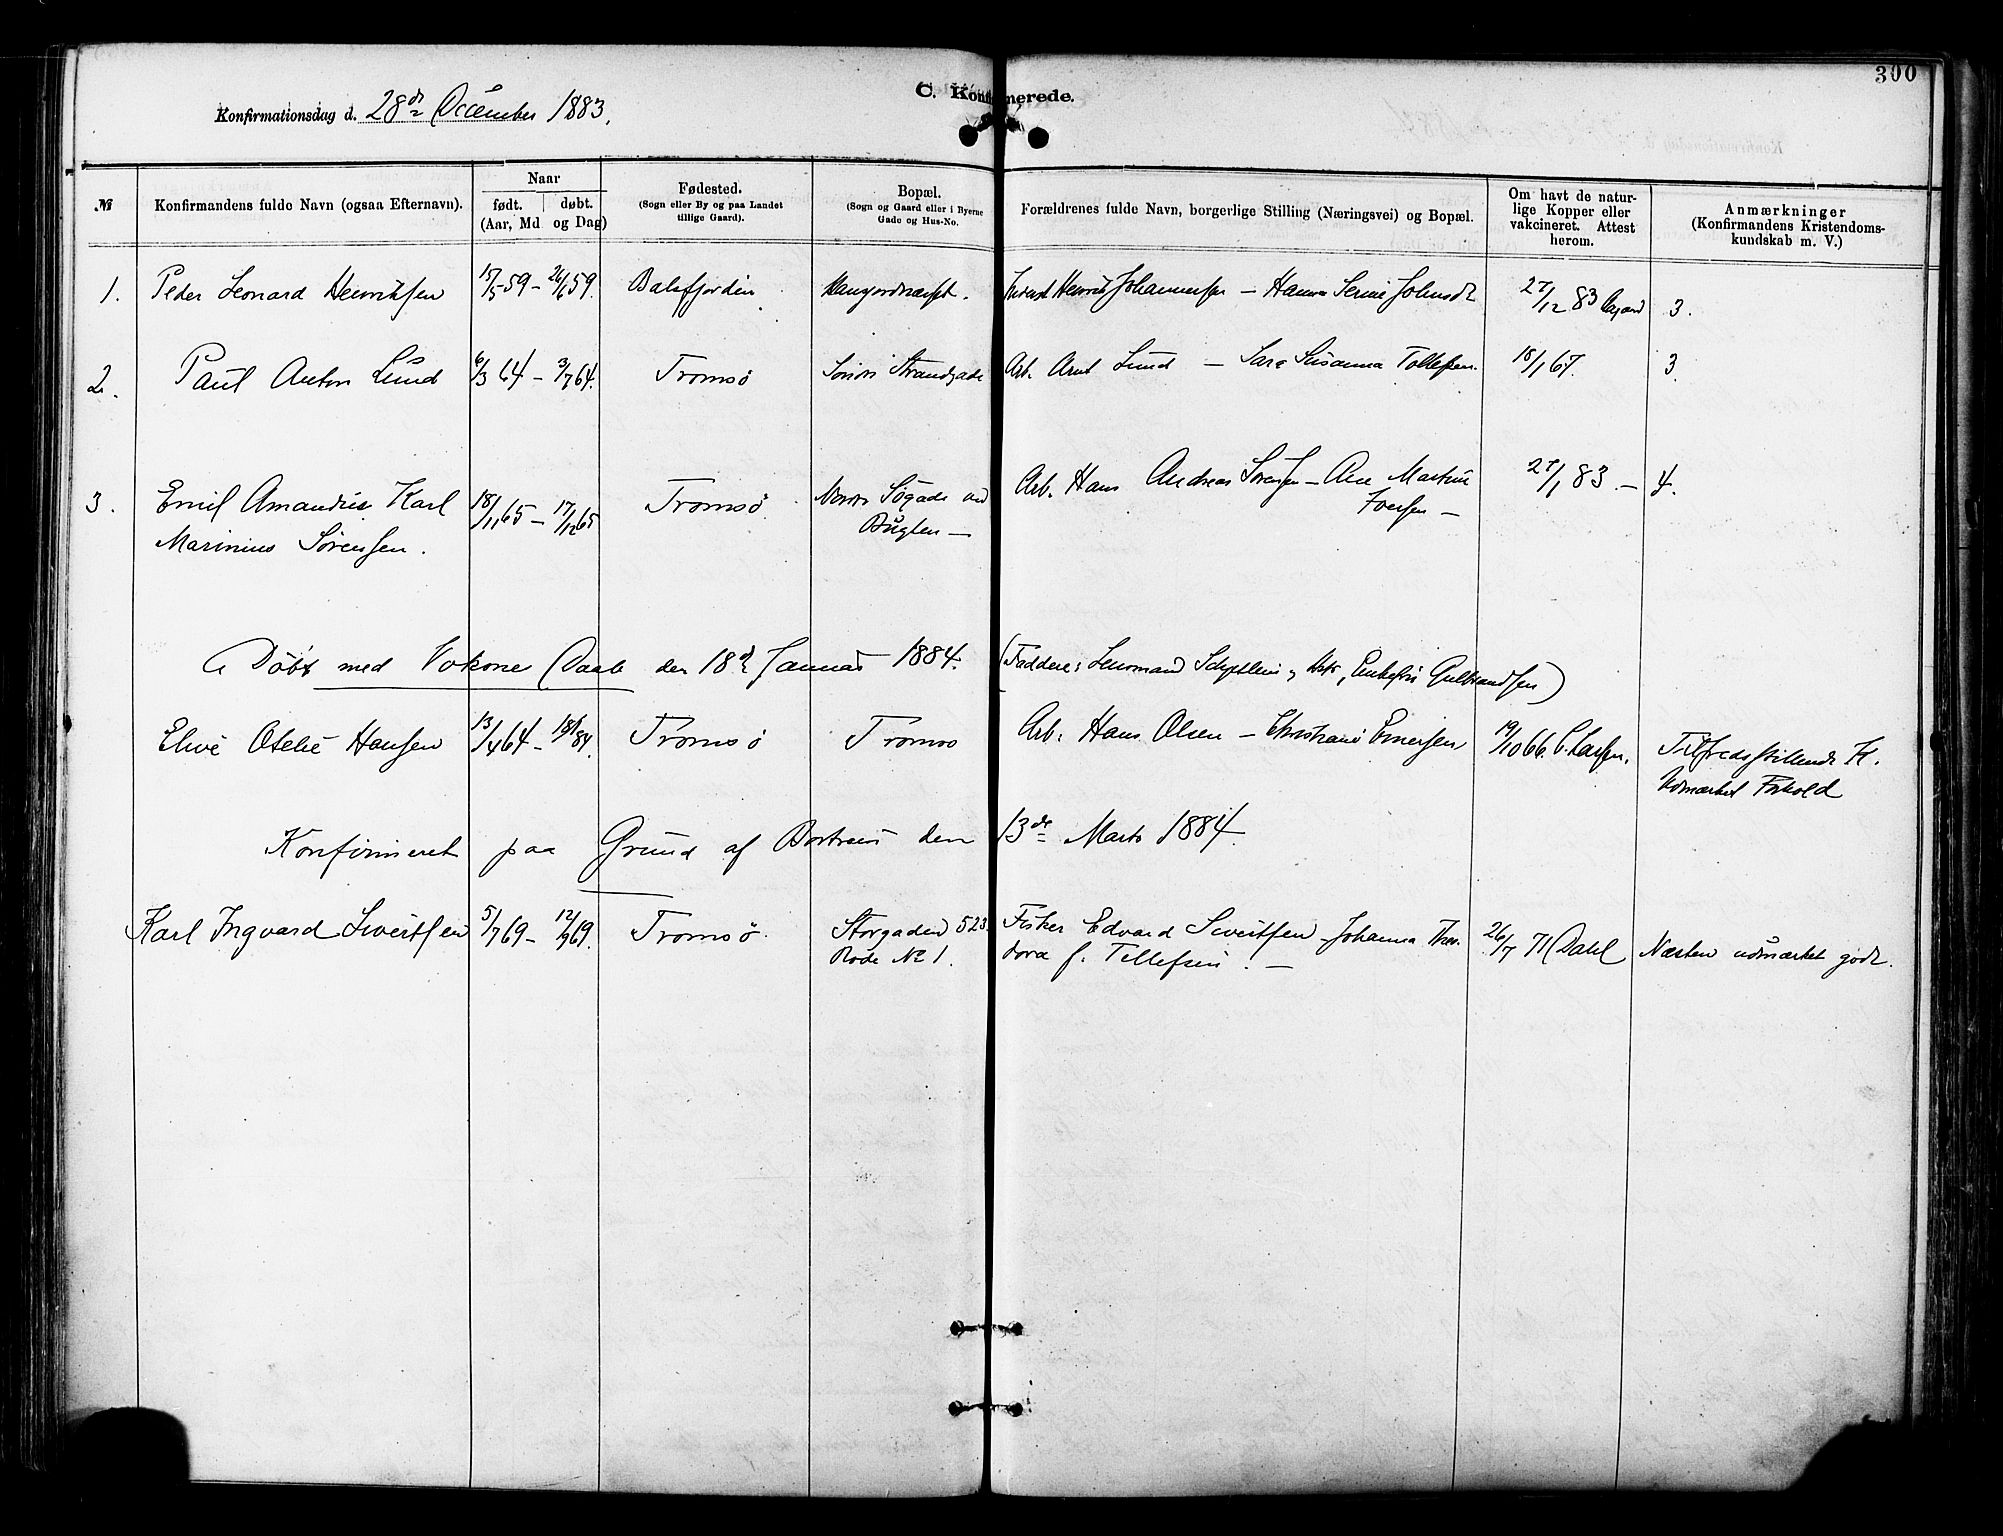 300
C. Konfirmerede.
Konfirmationsdag d. 28de December 1883.
№
Konfirmandens fulde Navn (ogsaa Efternavn).
Naar
født. døbt.
(Aar, Md. og Dag)
Fødested.
(Sogn eller By og paa Landet
tillige Gaard).
Bopæl.
(Sogn og Gaard eller i Byerne
Gade og Hus-No.
Forældrenes fulde Navn, borgerlige Stilling (Næringsvei) og Bopæl.
Om havt de natur-
lige Kopper eller
vakcineret. Attest
herom.
Anmærkninger
(Konfirmandens Kristendoms-
kundskab m. V.)
1. Peder Leonard Henriksen 15/5 59 – 26/6 59. Balsfjorden Henrik Johannessen – Hanna Johnsdt 27/12 83 3.
2. Paul Anton Lund 6/3 64 – 3/7 64. Tromsø Søndre Strandgade Arb. Arnt Lund – Sara Susanna Tollefsen. 18/1 67. 3.
3. Emil Amandus Karl 18/11 65 – 17/12 65 Tromsø Nordre Søgade ved Arb. Hans Andreas Sørensen – Ane Martine 27/1 83. – 4.
Marinius Sørensen. Bugten – Iversen –
Døbt med Voksne Daab den 18de Januar 1884. (Faddere: Lensmand Enkefru Gulbrandsen)
Elise Otelie Hansen 13/4 64 – 18/1 84. Tromsø Tromsø Arb. Hans Olsen – Christiane Einersen 19/10 66. C. Larsen. Tilfredsstillende K.
Udmærket Forhold
Konfirmeret paa Grund af Bortreise den 13de Marts 1884.
Karl Ingvard Sivertsen 5/7 69 – 12/9 69. Tromsø. Storgaden 523. Fisker Edvard Sivertsen – Johanna Theo- 26/7 71 Dahl Næsten udmærket godt.
Rode No 1. dora f. Tellefsen. –